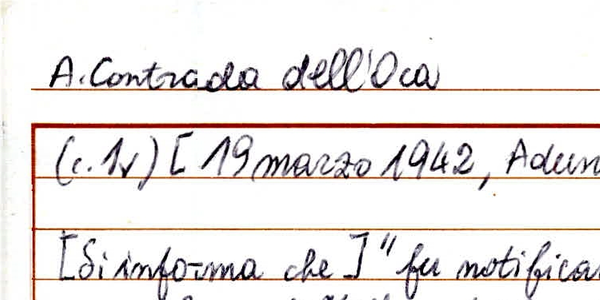 A. Contrada dell'Oca
(c.1v) [ 19 marzo 1942, Adun
[Si informa che ] "fu notifica